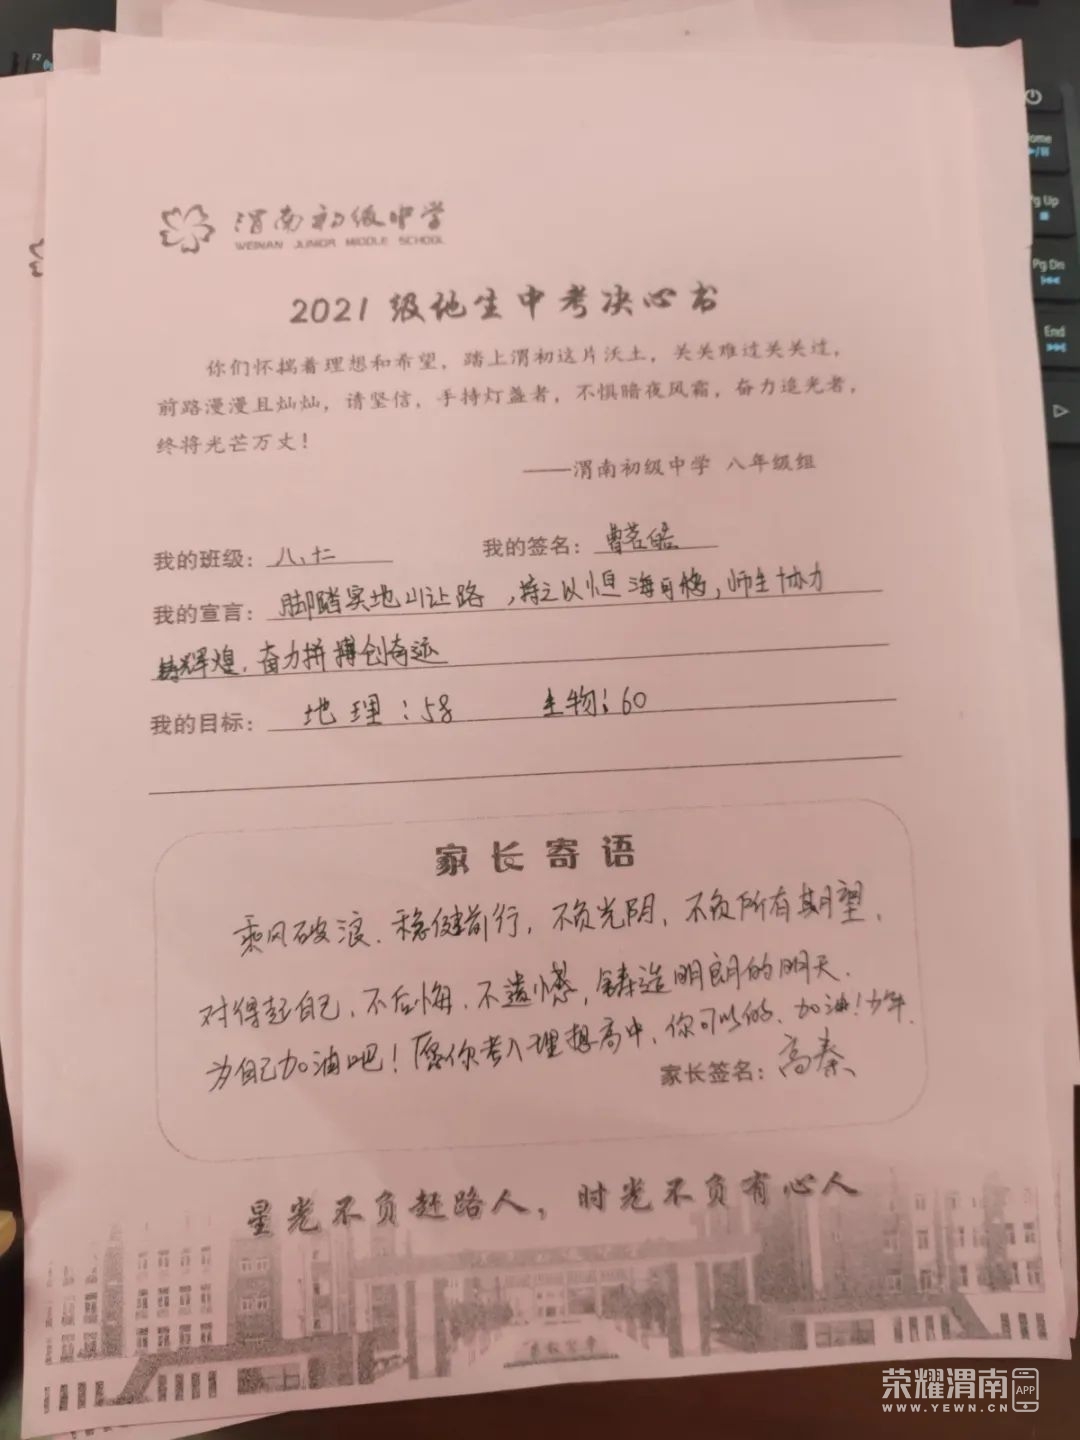 渭南初级中学
WEINAN JUNIOR MIDDLE SCHOOL
2021级地生中考决心书
你们怀揣着理想和希望，踏上渭初这片沃土，关关难过关关过，
前路漫漫且灿灿，请坚信，手持灯盏者，不惧暗夜风霜，奋力追光者，
终将光芒万丈！
——渭南初级中学 八年级组
我的班级：八、仁 我的签名：曹茗皓
我的宣言：脚踏实地山让路，持之以恒海可移，师生协力
铸辉煌，奋力拼搏创奇迹
我的目标：地理：58 生物：60
家长寄语
乘风破浪、稳健前行，不负光阴、不负所有期望、
对得起自己，不后悔、不遗憾，铸造明朗的明天、
为自己加油吧！愿你考入理想高中、你可以的、加油！少年.
家长签名：高秦
星光不负赶路人，时光不负有心人
荣耀渭南 APP
WWW.YEWN.CN
F2
Home
Pg Up
Pg Dn
End